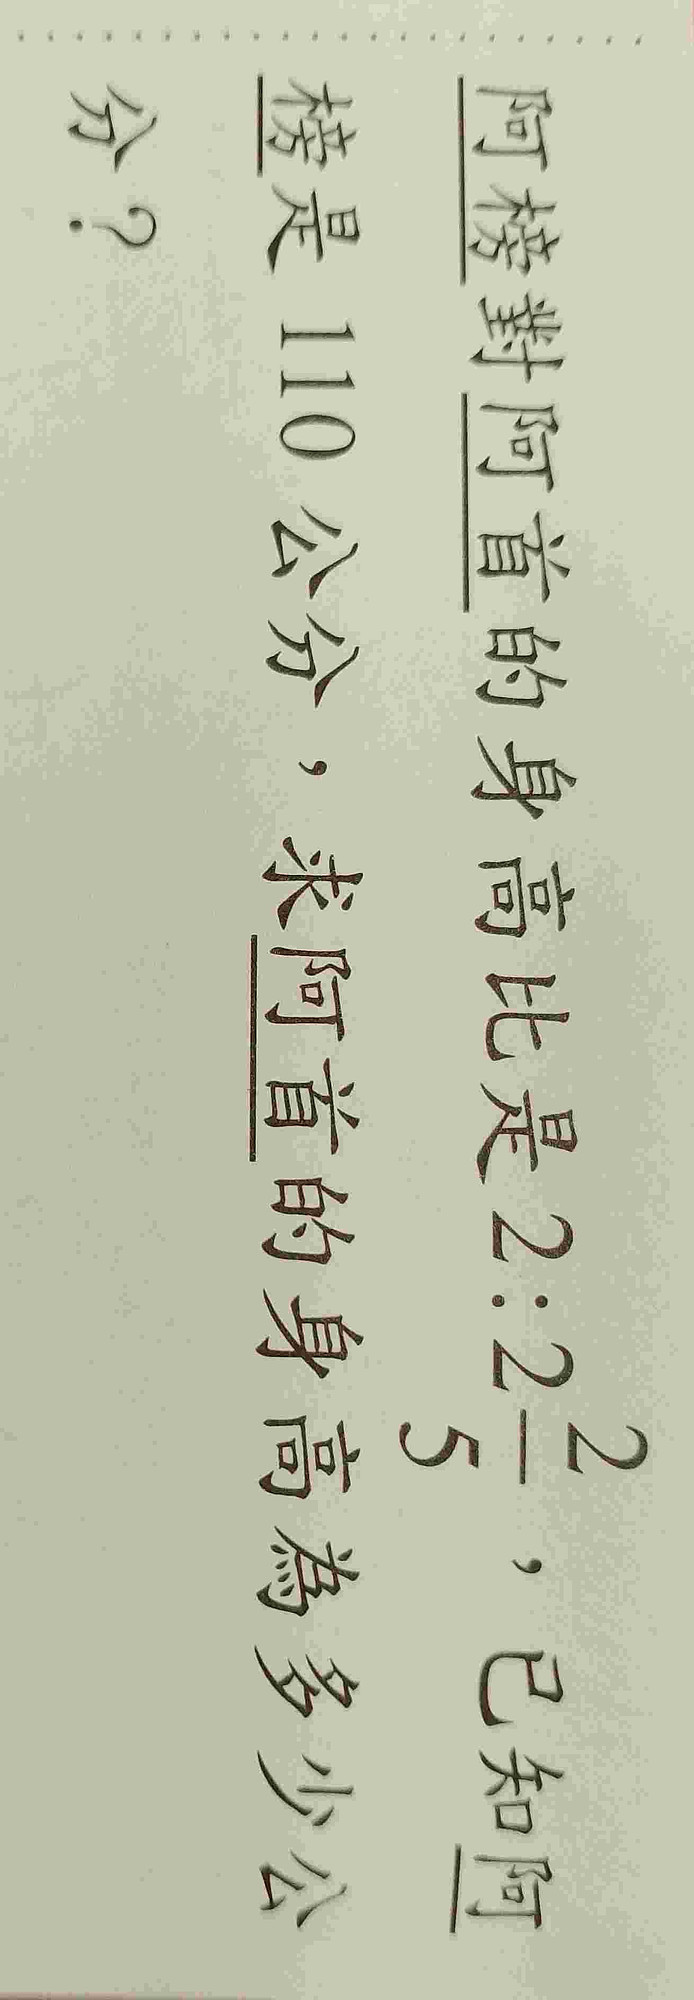 阿榜對阿首的身高比是2:2 2/5，已知阿
榜是 110 公分，求阿首的身高為多少公
分？